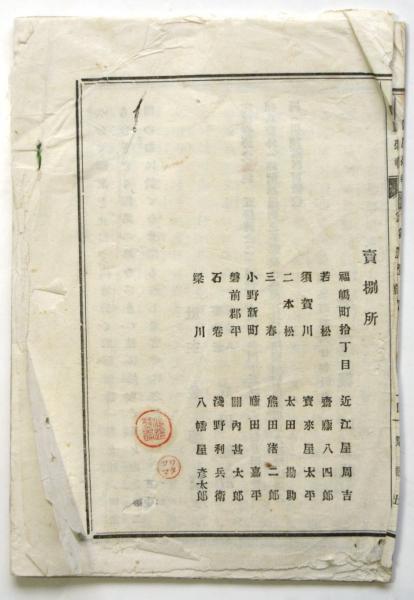 賣捌所
福嶋町拾丁目 近江屋周吉
若松 齋藤八四郎
須賀川 寳來屋太平
二本松 太田勘助
三春 熊田猪二郎
小野新町 藤田嘉平
磐前郡平 關內甚太郎
石卷 淺野利兵衛
梁川 八幡屋彦太郎